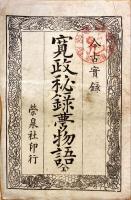 今古實録
寛政秘録夢物語
榮泉社印行